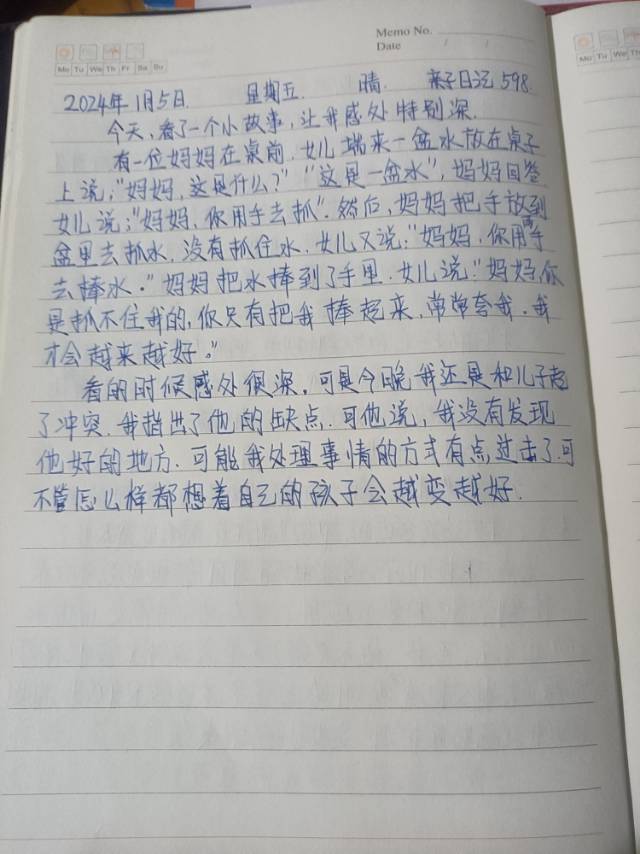 Memo No.
Date / /
Mo Tu We Th Fr Sa Su
2024年1月5日. 星期五. 晴. 亲子日记598.
今天,看了一个小故事,让我感处特别深.
有一位妈妈在桌前.女儿端来一盆水放在桌子
上说:"妈妈,这是什么?""这是一盆水",妈妈回答
女儿说:"妈妈,你用手去抓".然后,妈妈把手放到
盆里去抓水.没有抓住水.女儿又说:"妈妈,你用两手
去捧水。"妈妈把水捧到了手里.女儿说:"妈妈,你
是抓不住我的,你只有把我捧起来,常常夸我.我
才会越来越好。"
看的时候感处很深.可是今晚我还是和儿子起
了冲突.我指出了他的缺点.可他说,我没有发现
他好的地方.可能我处理事情的方式有点过击了.可
不管怎么样都想着自己的孩子会越变越好.
Mo Tu We Th